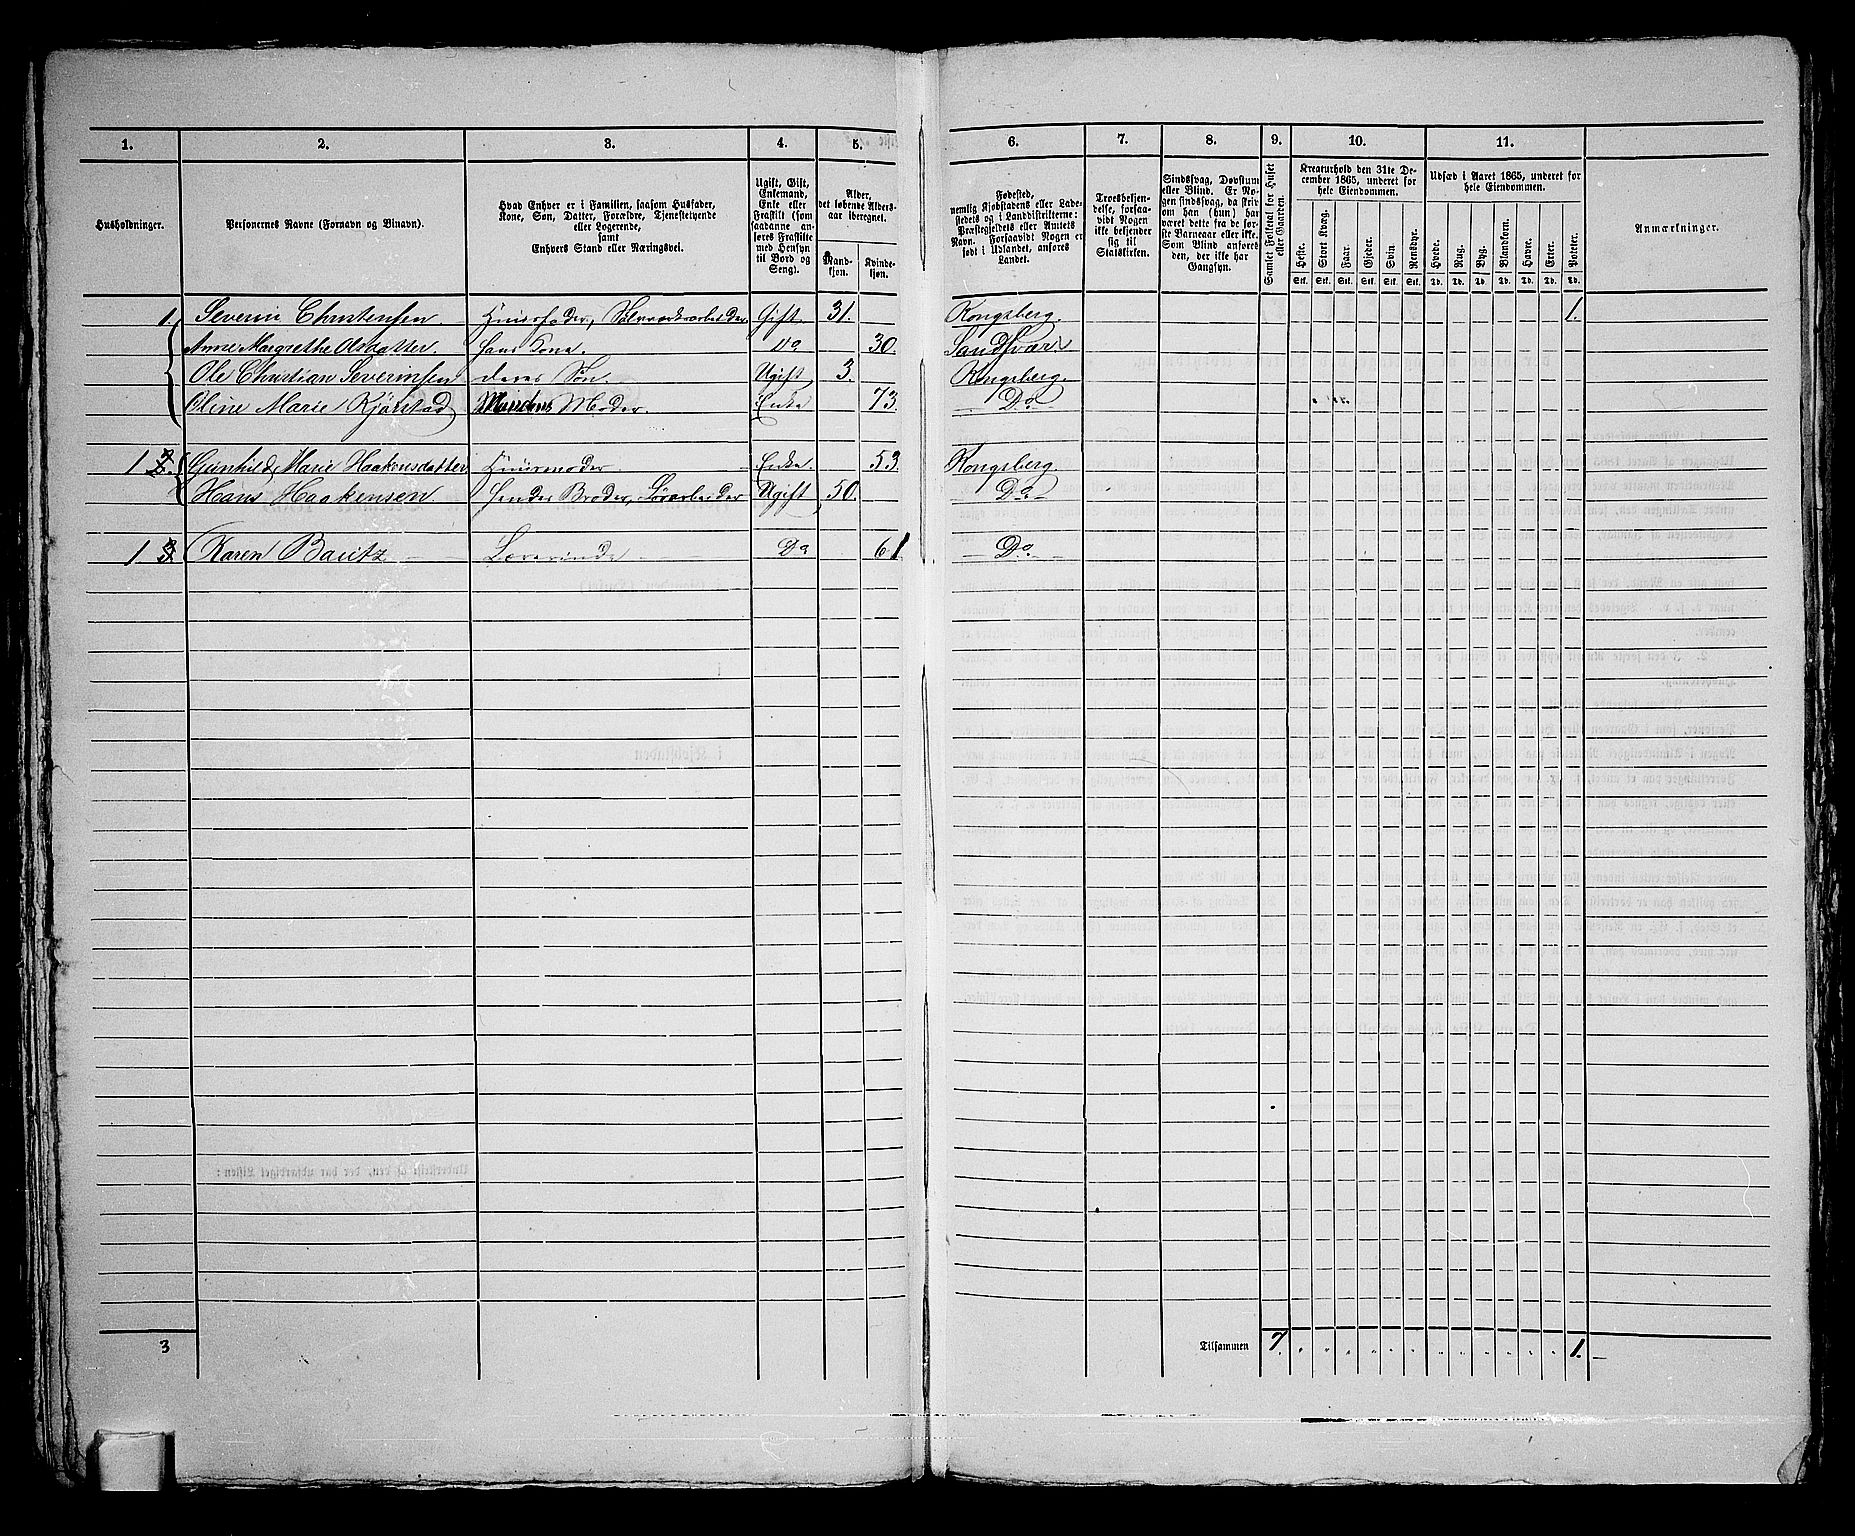 1. 2. 3. 4. 5. 6. 7. 8. 9. 10. 11.
Husholdninger.
Personernes Navne (Fornavn og Binavn).
Hvad Enhver er i Familien, saasom Husfader,
Kone, Søn, Datter, Forældre, Tjenestetyende
eller Logerende,
samt
Enhvers Stand eller Næringsvei.
Ugift, Gift,
Enkemand,
Enke eller
Fraskilt (som
saadanne an-
føres Fraskilte
med Hensyn
til Bord og
Seng).
Alder,
det løbende Alders-
aar iberegnet.
Mand-
kjøn.
Kvinde-
kjøn.
Fødested,
nemlig Kjøbstadens eller Lade-
stedets og i Landdistrikterne:
Præstegjeldets eller Amtets
Navn. Forsaavidt Nogen er
født i Udlandet, anføres
Landet.
Troesbekjen-
delse, forsaa-
vidt Nogen
ikke bekjender
sig til
Statskirken.
Sindssvag, Døvstum
eller Blind. Er No-
gen sindssvag, da skriv
om han (hun) har
været dette fra de før-
ste Barneaar eller ikke.
Som Blind anføres
den, der ikke har
Gangsyn.
Samlet Folketal for Huset
eller Gaarden.
Kreaturhold den 31te De-
cember 1865, underet for
hele Eiendommen.
Heste. Stort Kvæg. Faar. Gjeder. Svin Rensdyr.
Stk. Stk. Stk. Stk. Stk. Stk.
Udsæd i Aaret 1865, underet for
hele Eiendommen.
Hvede. Rug. Byg. Blandkorn. Havre. Erter. Poteter.
Td. Td. Td. Td. Td. Td. Td.
Anmærkninger.
1. Severin Christensen Huusfader, Sølvværksarbeider Gift 31. Kongsberg. 1.
Anne Margrethe Olsdatter. Hans Kone. Do 30. Sandsvær
Ole Christian Severinsen deres Søn. Ugift 3. Kongsberg.
Oline Marie Kjørstad Moder. Enke 73. Do
1 2. Gunhild Marie Haakensdatter Huusmoder Enke. 53. Kongsberg.
Hans Haakensen Hendes Broder, Ugift 50. Do
1 3. Karen Bautz Lærerinde Do 61 Do
3 Tilsammen 7. " " " " " " " " " " " " 1.